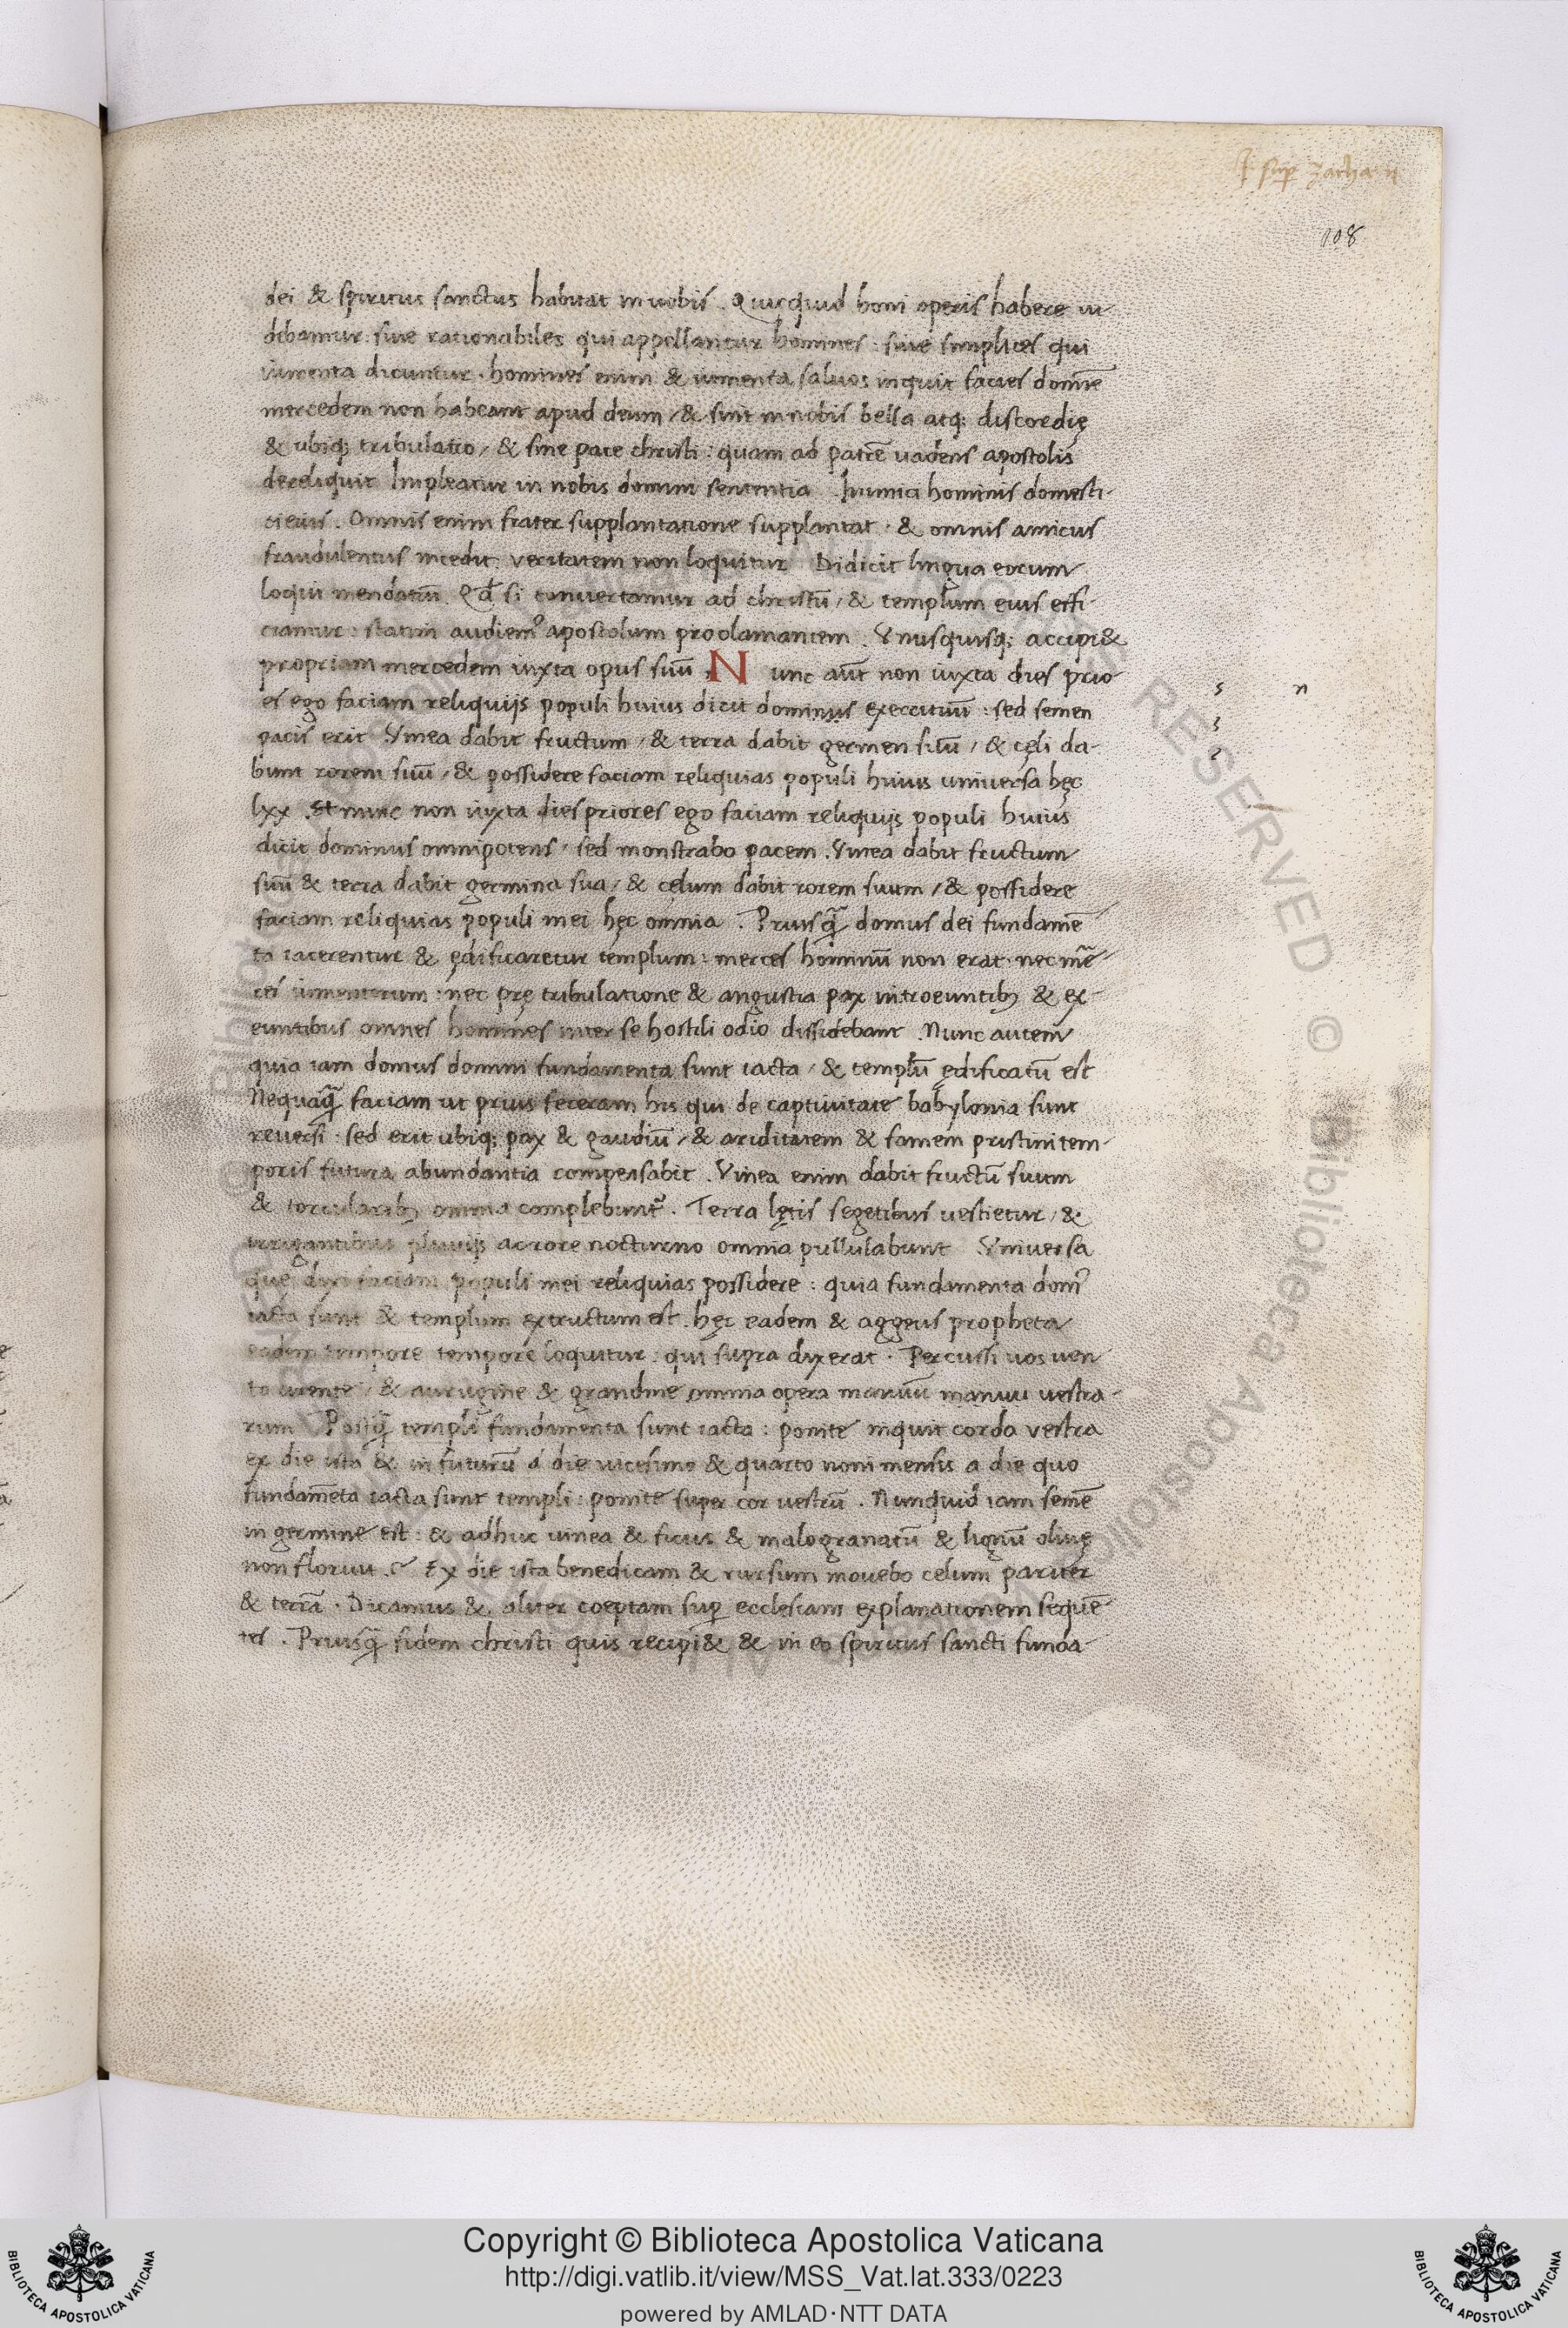 J sup zacha ii
108
dei & spiritus sanctus habitat in uobis . Quicquid boni operis habere ui
debamur : siue rationabiles qui appellantur homines : siue simplices qui
iumenta dicuntur . homines enim & iumenta saluos inquit facies domīe
mercedem non habeant apud deum / & sint in nobis bella atq; discordię
& ubiq; tribulatio / & sine pace christi : quam ad patrē uadens apostolis
dereliquit Impleatur in nobis domini sententia . Inimici hominis domesti-
ci eius . Omnis enim frater supplantatione supplantat . & omnis amicus
fraudulentus incedit . veritatem non loquitur Didicit lingua eorum
loqui mendatiū . Qd si conuertamur ad christū / & templum eius effi-
ciamur : statim audiem⁹ apostolum proclamantem . Vnusquisq; accipi&
propriam mercedem iuxta opus suū . Nunc aūt non iuxta dies prio
es ego faciam reliquijs populi huius dicit dominus exercituū : sed semen
pacis erit Vinea dabit fructum / & terra dabit germen suū / & cęli da-
bunt rorem suū / & possidere faciam reliquias populi huius uniuersa hęc
lxx . Et nunc non iuxta dies priores ego faciam reliquijs populi huius
dicit dominus omnipotens / sed monstrabo pacem . Vinea dabit fructum
suū & terra dabit germina sua / & cęlum dabit rorem suum / & possidere
faciam reliquias populi mei hęc omnia . Priusq̄ domus dei fundamē
ta iacerentur & ędificaretur templum : merces hominū non erat . nec mē
ces iumentorum : nec prę tribulatione & angustia pax introeuntib; & ex-
euntibus omnes homines inter se hostili odio dissidebant . Nunc autem
quia iam domus domini fundamenta sunt iacta / & templū ędificatū est
Nequaq̄ faciam ut prius feceram his qui de captiuitate babylonia sunt
reuersi : sed erit ubiq; pax & gaudiū / & ariditatem & famem pristini tem-
poris futura abundantia compensabit . Vinea enim dabit fructū suum
& torcularib; omnia complebunt̄ . Terra lętis segetibus uestietur / &
irrigantibus pluuijs ac rore nocturno omnia pullulabunt Vniuersa
quę dixi faciam populi mei reliquias possidere : quia fundamenta domī
iacta sunt & templum extructum est . hęc eadem & aggeus propheta
eodem tempore tempore loquitur : qui supra dixerat . Percussi uos uen
to urente / & aurugine & grandine omnia opera manuū manuu uestra-
rum Postq̄ templi fundamenta sunt iacta : ponite inquit corda vestra
ex die ista & in futurū a die uicesimo & quarto noni mensis a die quo
fundam̄eta iacta sunt templi : ponite super cor uestrū . Nunquid iam semē
in germine est : & adhuc uinea & ficus & malogranatū & lignū oliuę
non floruit . Ex die ista benedicam & rursum mouebo celum pariter
& terrā . Dicamus & aliter coeptam sup ecclesiam explanationem sequē
tes . Priusq̄ fidem christi quis recipi& & in eo spiritus sancti funda-
s n
s
2
Copyright © Biblioteca Apostolica Vaticana
http://digi.vatlib.it/view/MSS_Vat.lat.333/0223
powered by AMLAD·NTT DATA
BIBLIOTECA APOSTOLICA VATICANA
BIBLIOTECA APOSTOLICA VATICANA